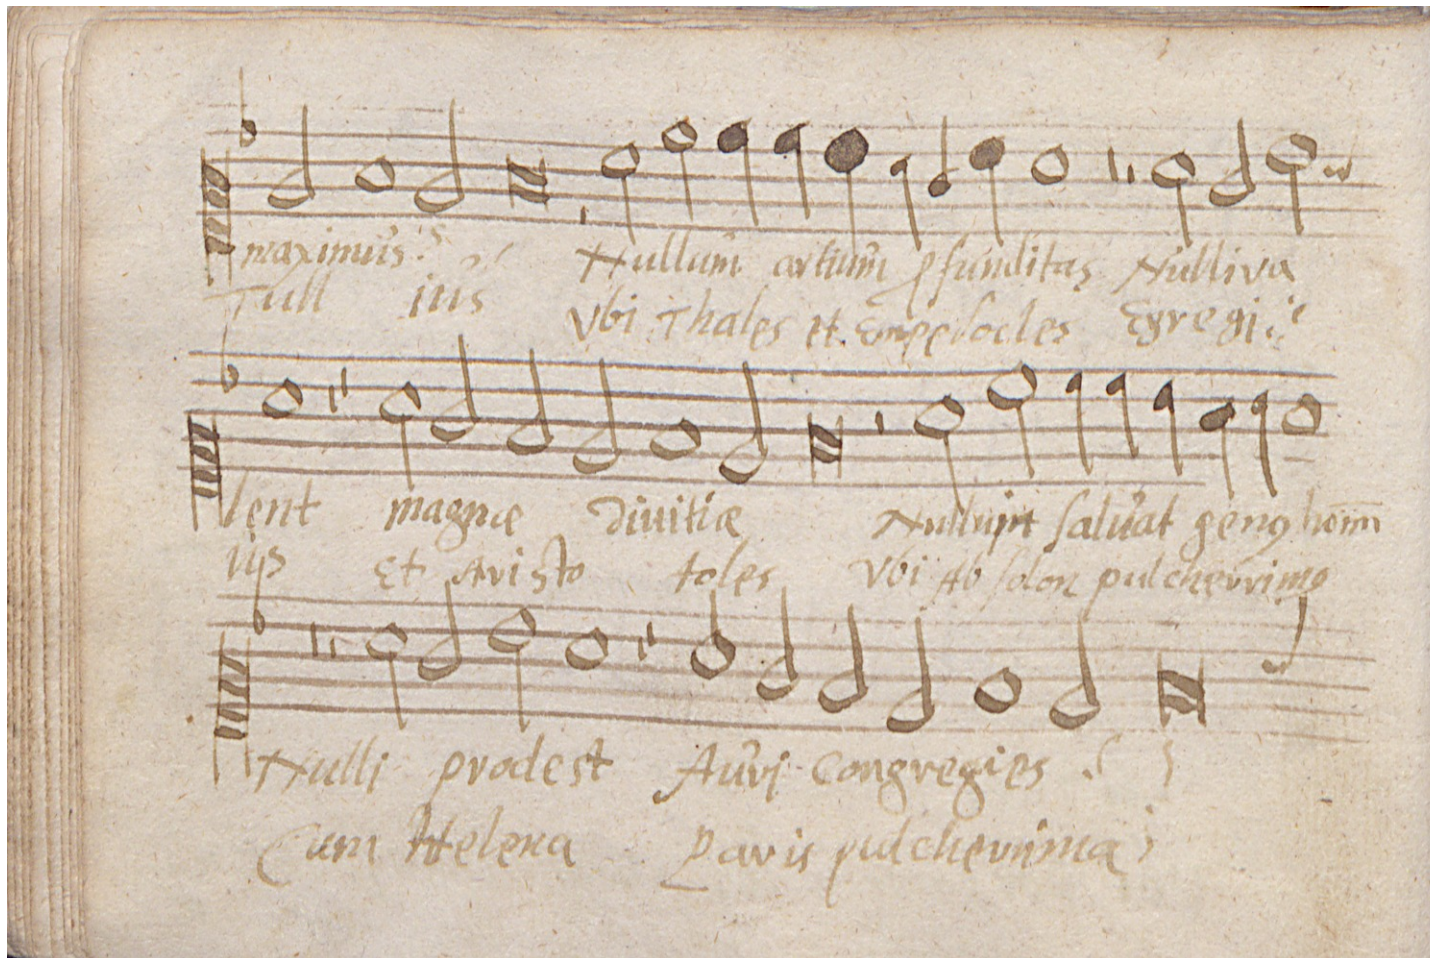 maximus.
Tull ius
Nullum artium pfunditas Nulli va
Vbi Thales et Empedocles Egregi
lent magnæ Diuitiæ Nullum saluat geng homm
Et Aristo toles Vbi Absolon pulcherrimg
Nulli prodest Auri Congregies
Cum Helena Paris pulcherrima